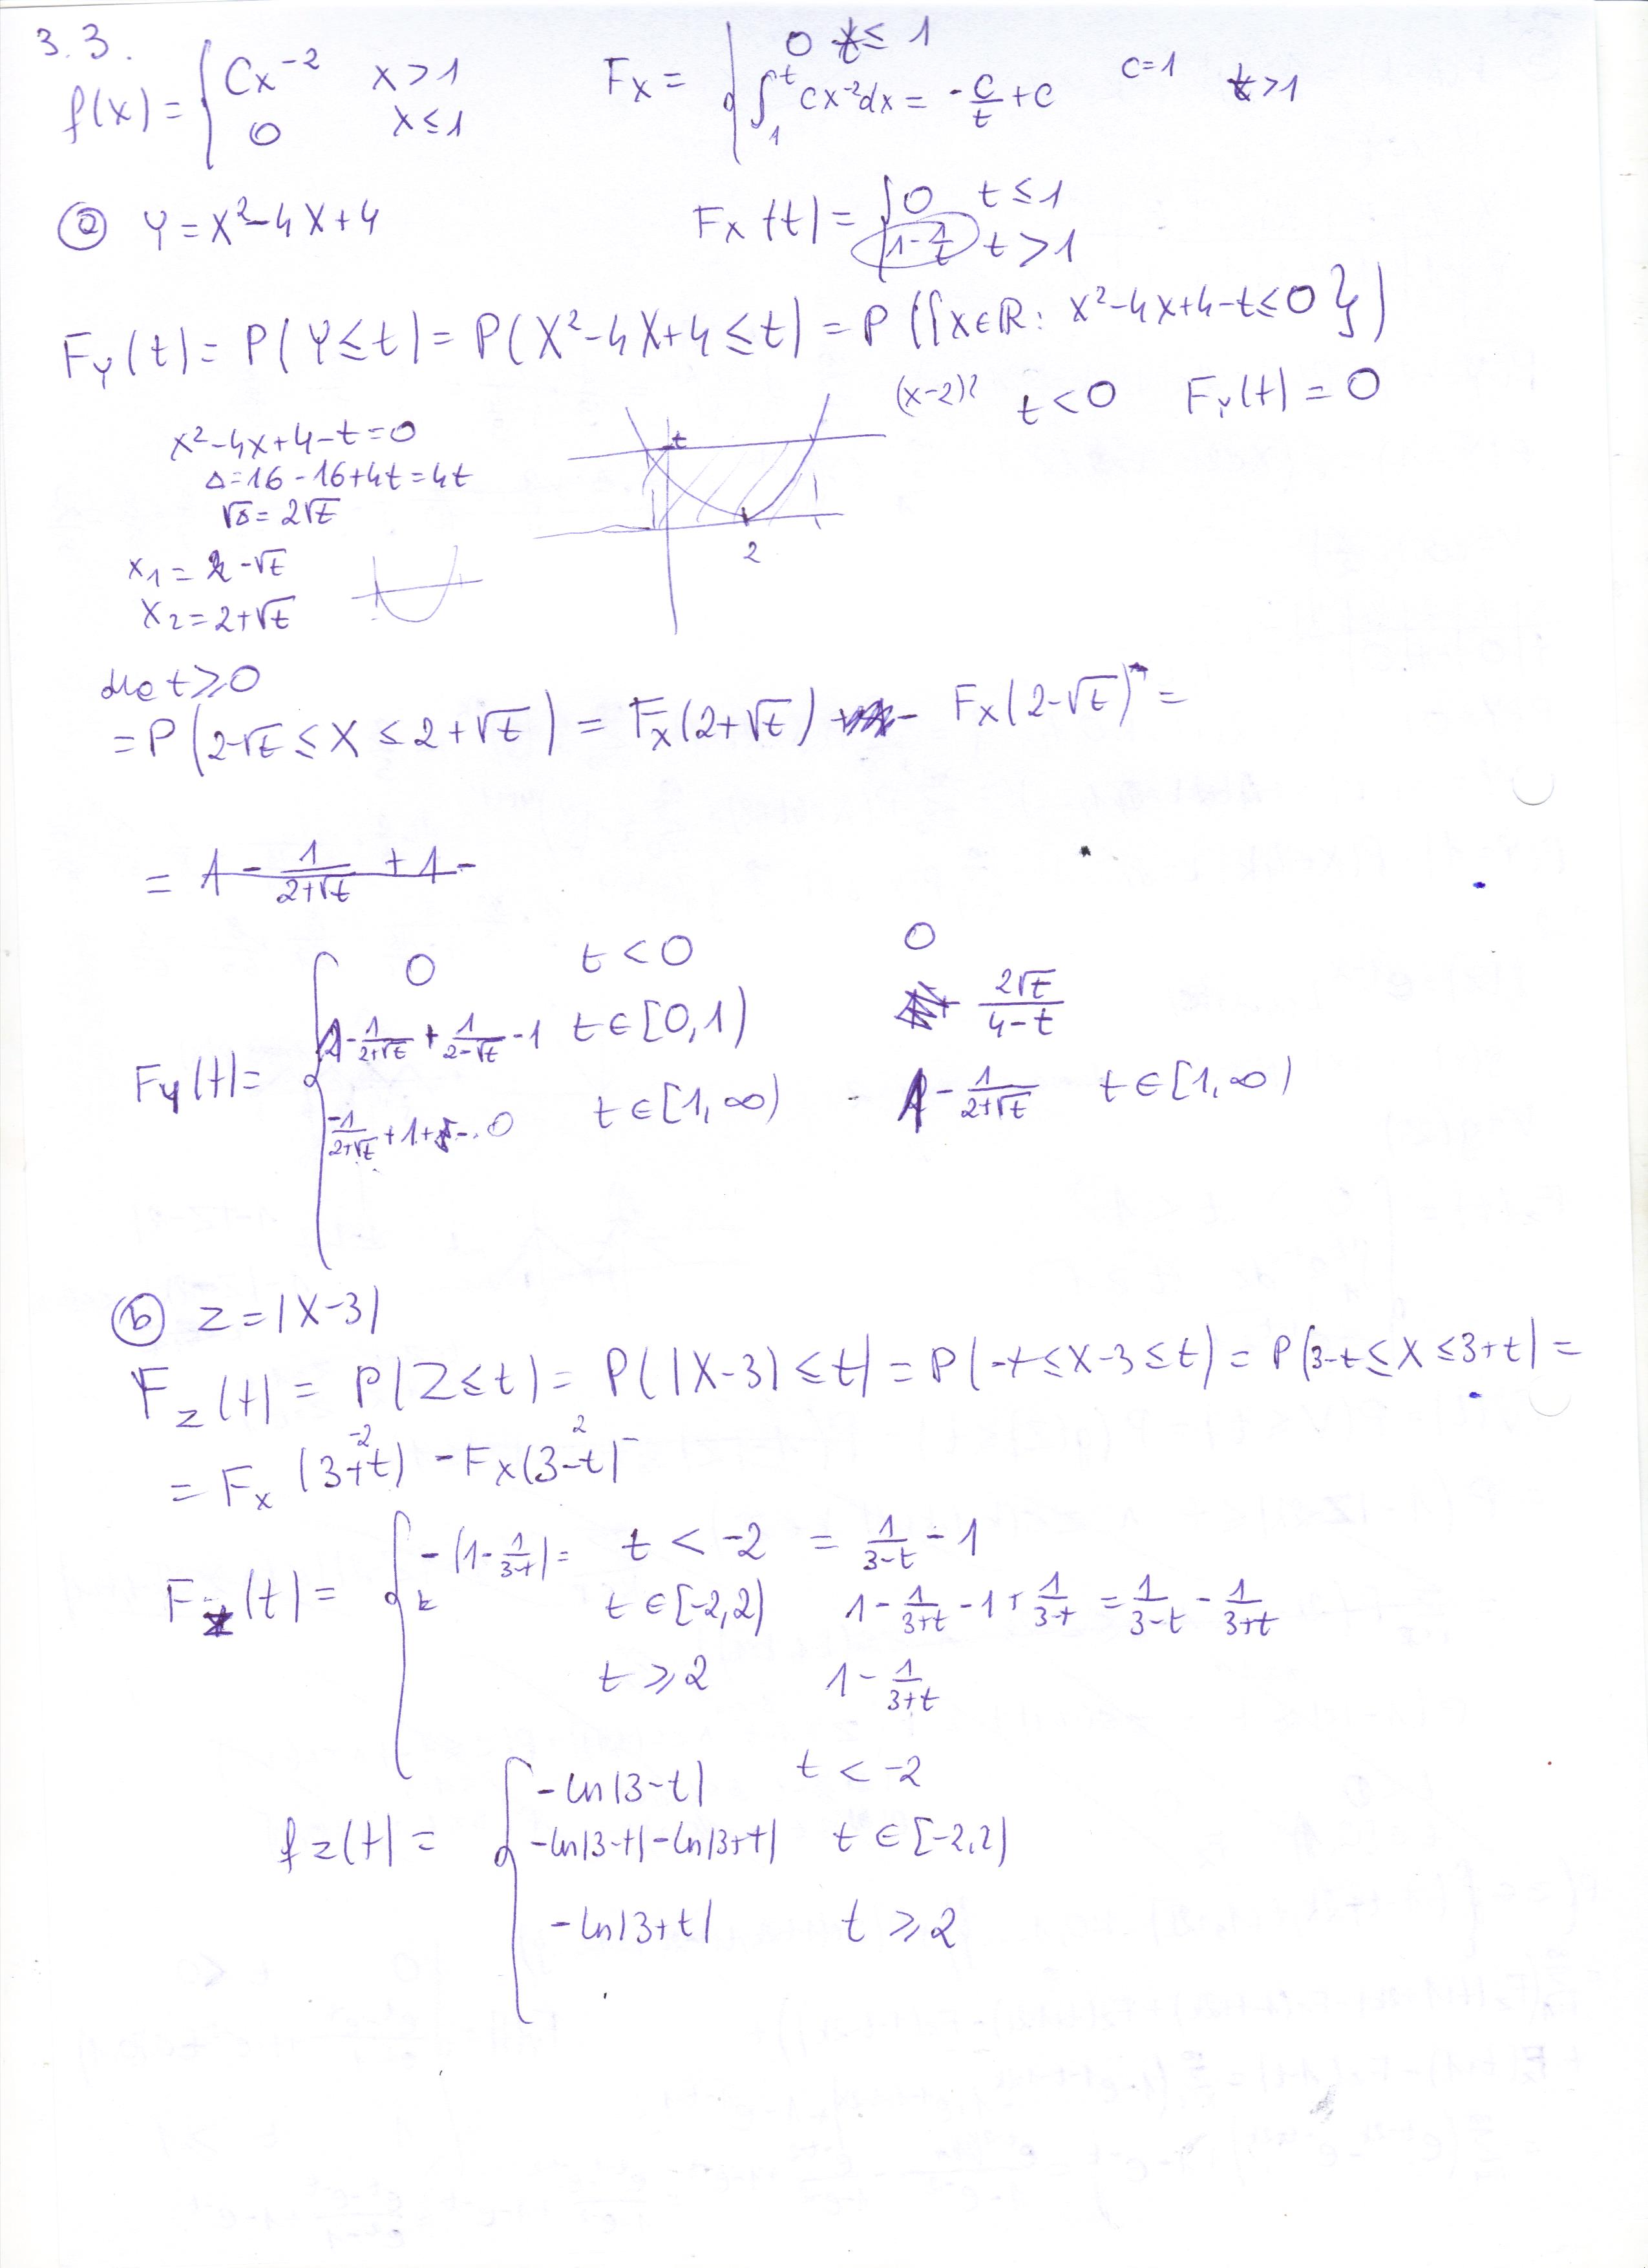 3.3.
f(x) = { Cx⁻² x>1
0 x≤1
Fx = { 0 t≤1
∫₁ᵗ cx⁻²dx = -c/t + c c=1 t>1
ⓐ Y = X²-4X+4
Fx(t) = { 0 t≤1
1-1/t t>1
F_Y(t) = P(Y≤t) = P(X²-4X+4≤t) = P({x∈ℝ: x²-4x+4-t≤0})
(x-2)² t<0 F_Y(t) = 0
x²-4x+4-t=0
Δ=16-16+4t=4t
√Δ=2√t
x₁=2-√t
x₂=2+√t
t
2
dla t≥0
= P(2-√t ≤ X ≤ 2+√t) = F_X(2+√t) - F_X(2-√t)⁻ =
= 1 - 1/(2+√t) + 1 -
F_Y(t) = { 0 t<0 0
1 - 1/(2+√t) + 1/(2-√t) - 1 t∈[0,1) 2√t/(4-t)
-1/(2+√t) + 1 + - 0 t∈[1,∞) 1 - 1/(2+√t) t∈[1,∞)
ⓑ Z = |X-3|
F_Z(t) = P(Z≤t) = P(|X-3|≤t) = P(-t≤X-3≤t) = P(3-t≤X≤3+t) =
-2 2
= F_X(3+t) - F_X(3-t)⁻
F_Z(t) = { -(1-1/(3-t)) = t<-2 = 1/(3-t) - 1
t∈[-2,2) 1 - 1/(3+t) - 1 + 1/(3-t) = 1/(3-t) - 1/(3+t)
t≥2 1 - 1/(3+t)
f_Z(t) = { -ln|3-t| t<-2
-ln|3-t|-ln|3+t| t∈[-2,2)
-ln|3+t| t≥2